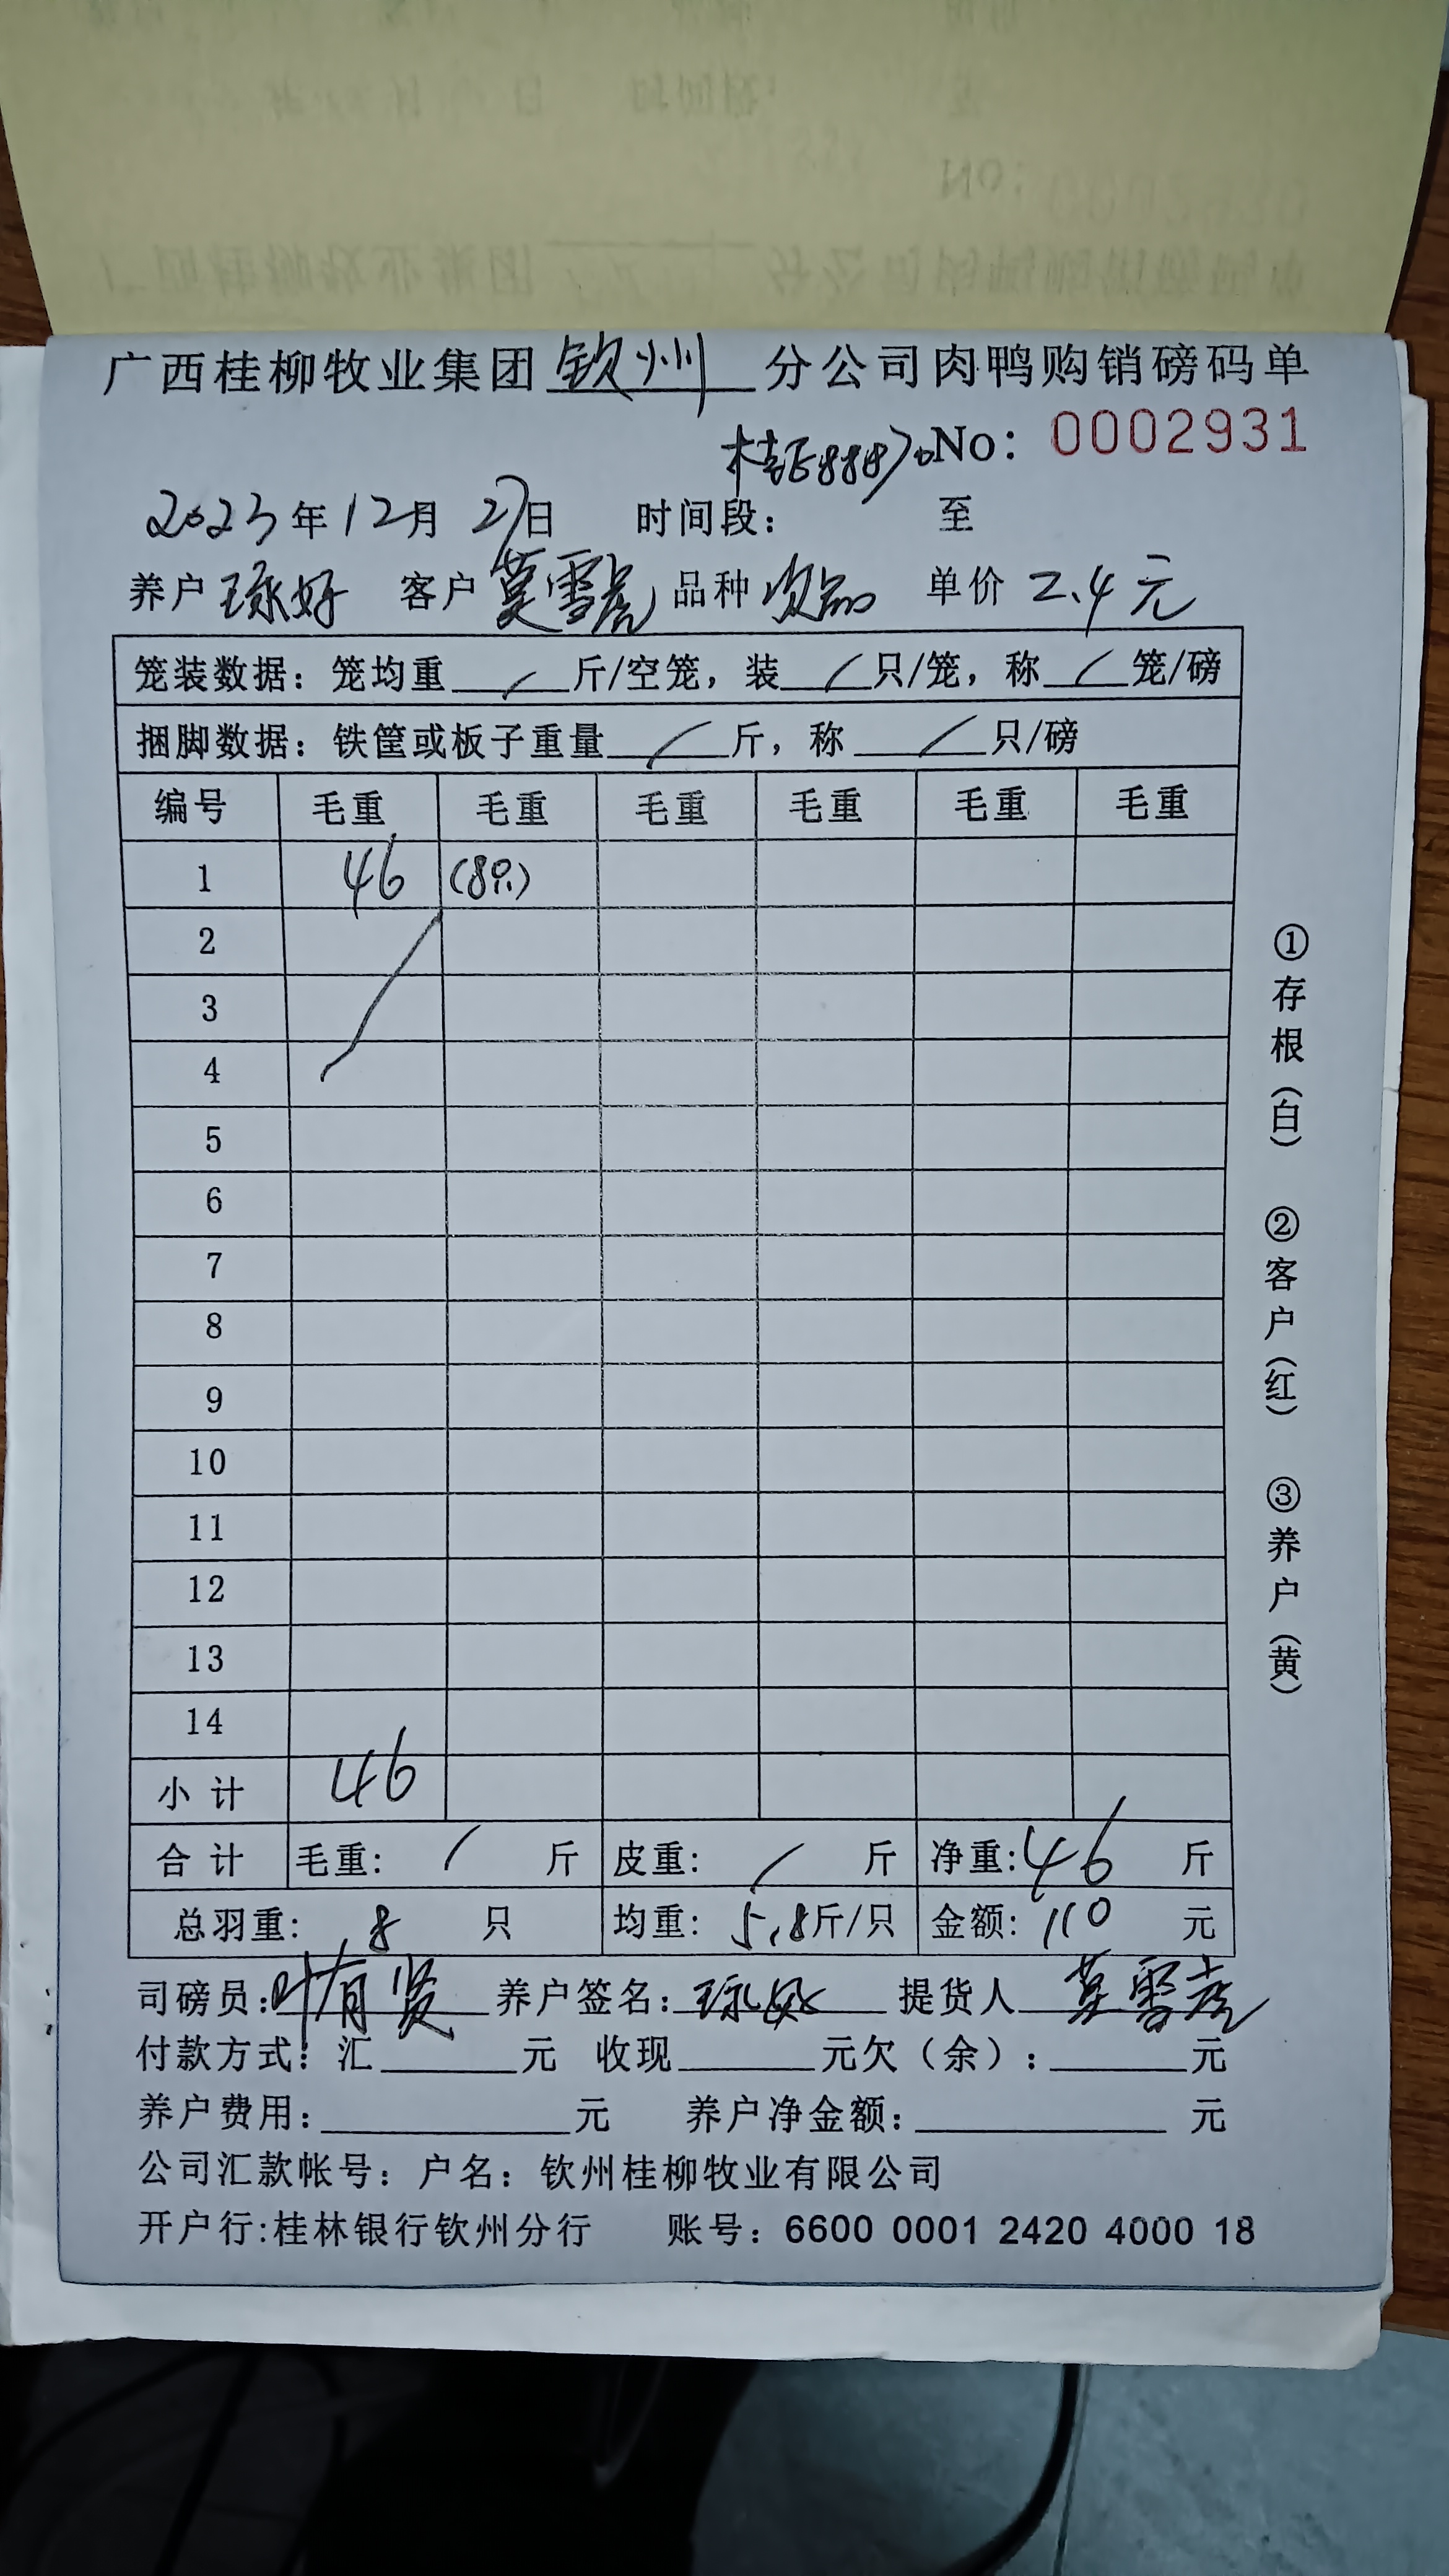 广西桂柳牧业集团钦州分公司肉鸭购销磅码单
No: 0002931
2023年12月27日 时间段: 至
养户 琼好 客户 莫雪虎 品种 次品 单价 2.4元
笼装数据: 笼均重 / 斤/空笼, 装 / 只/笼, 称 / 笼/磅
捆脚数据: 铁筐或板子重量 / 斤, 称 / 只/磅
编号 毛重 毛重 毛重 毛重 毛重 毛重
1 46 (8只)
2
3
4
5
6
7
8
9
10
11
12
13
14
小计 46
合计 毛重: / 斤 皮重: / 斤 净重: 46 斤
总羽重: 8 只 均重: 5.8斤/只 金额: 110 元
司磅员: 叶有贤 养户签名: 琼好 提货人 莫雪虎
付款方式: 汇 元 收现 元欠(余): 元
养户费用: 元 养户净金额: 元
公司汇款帐号: 户名: 钦州桂柳牧业有限公司
开户行:桂林银行钦州分行 账号: 6600 0001 2420 4000 18
①存根(白) ②客户(红) ③养户(黄)